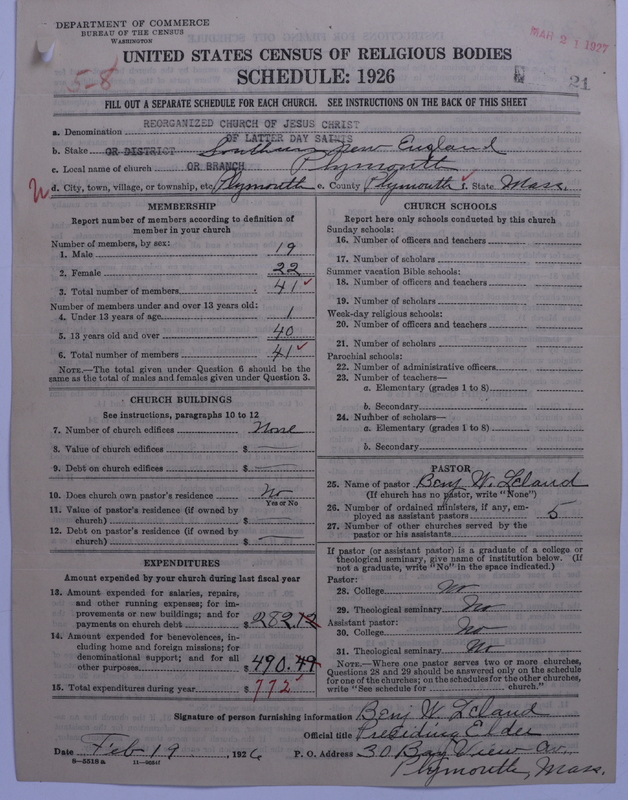 DEPARTMENT OF COMMERCE
BUREAU OF THE CENSUS
WASHINGTON
MAR 21 1927
UNITED STATES CENSUS OF RELIGIOUS BODIES
5-8
SCHEDULE: 1926
21
FILL OUT A SEPARATE SCHEDULE FOR EACH CHURCH. SEE INSTRUCTIONS ON THE BACK OF THIS SHEET
REORGANIZED CHURCH OF JESUS CHRIST
a. Denomination
OF LATTER DAY SAINTS
b. Stake OR DISTRICT Southern New England
c. Local name of church OR BRANCH Plymouth
d. City, town, village, or township, etc. Plymouth e. County Plymouth f. State Mass.
MEMBERSHIP
Report number of members according to definition of
member in your church
Number of members, by sex:
1. Male 19
2. Female 22
3. Total number of members 41
Number of members under and over 13 years old:
4. Under 13 years of age 1
5. 13 years old and over 40
6. Total number of members 41
NOTE.—The total given under Question 6 should be the
same as the total of males and females given under Question 3.
CHURCH BUILDINGS
See instructions, paragraphs 10 to 12
7. Number of church edifices None
8. Value of church edifices $
9. Debt on church edifices $
10. Does church own pastor's residence No
Yes or No
11. Value of pastor's residence (if owned by
church) $
12. Debt on pastor's residence (if owned by
church) $
EXPENDITURES
Amount expended by your church during last fiscal year
13. Amount expended for salaries, repairs,
and other running expenses; for im-
provements or new buildings; and for
payments on church debt $ 282.12
14. Amount expended for benevolences, in-
cluding home and foreign missions; for
denominational support; and for all
other purposes $ 490.49
15. Total expenditures during year $ 772
CHURCH SCHOOLS
Report here only schools conducted by this church
Sunday schools:
16. Number of officers and teachers
17. Number of scholars
Summer vacation Bible schools:
18. Number of officers and teachers
19. Number of scholars
Week-day religious schools:
20. Number of officers and teachers
21. Number of scholars
Parochial schools:
22. Number of administrative officers
23. Number of teachers—
a. Elementary (grades 1 to 8)
b. Secondary
24. Number of scholars—
a. Elementary (grades 1 to 8)
b. Secondary
PASTOR
25. Name of pastor Benj W. Leland
(If church has no pastor, write "None")
26. Number of ordained ministers, if any, em-
ployed as assistant pastors 5
27. Number of other churches served by the
pastor or his assistants
If pastor (or assistant pastor) is a graduate of a college or
theological seminary, give name of institution below. (If
not a graduate, write "No" in the space indicated.)
Pastor:
28. College No
29. Theological seminary No
Assistant pastor:
30. College No
31. Theological seminary No
NOTE.—Where one pastor serves two or more churches,
Questions 28 and 29 should be answered only on the schedule
for one of the churches; on the schedules for the other churches,
write "See schedule for church."
Signature of person furnishing information Benj W. Leland
Official title Presiding Elder
Date Feb 19, 1926 P. O. Address 30 Bay View Av.
8—5518a 11—9654f
Plymouth, Mass.